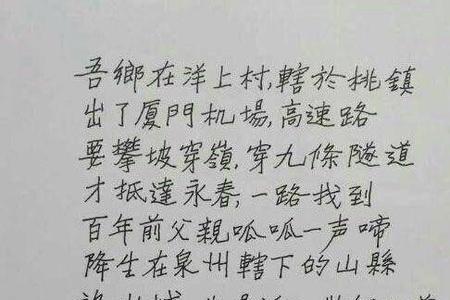 吾鄉在洋上村,轄於桃鎮
出了厦門机場,高速路
要攀坡穿嶺,穿九條隧道
才抵達永春,一路找到
百年前父親呱呱一声啼
降生在泉州轄下的山縣